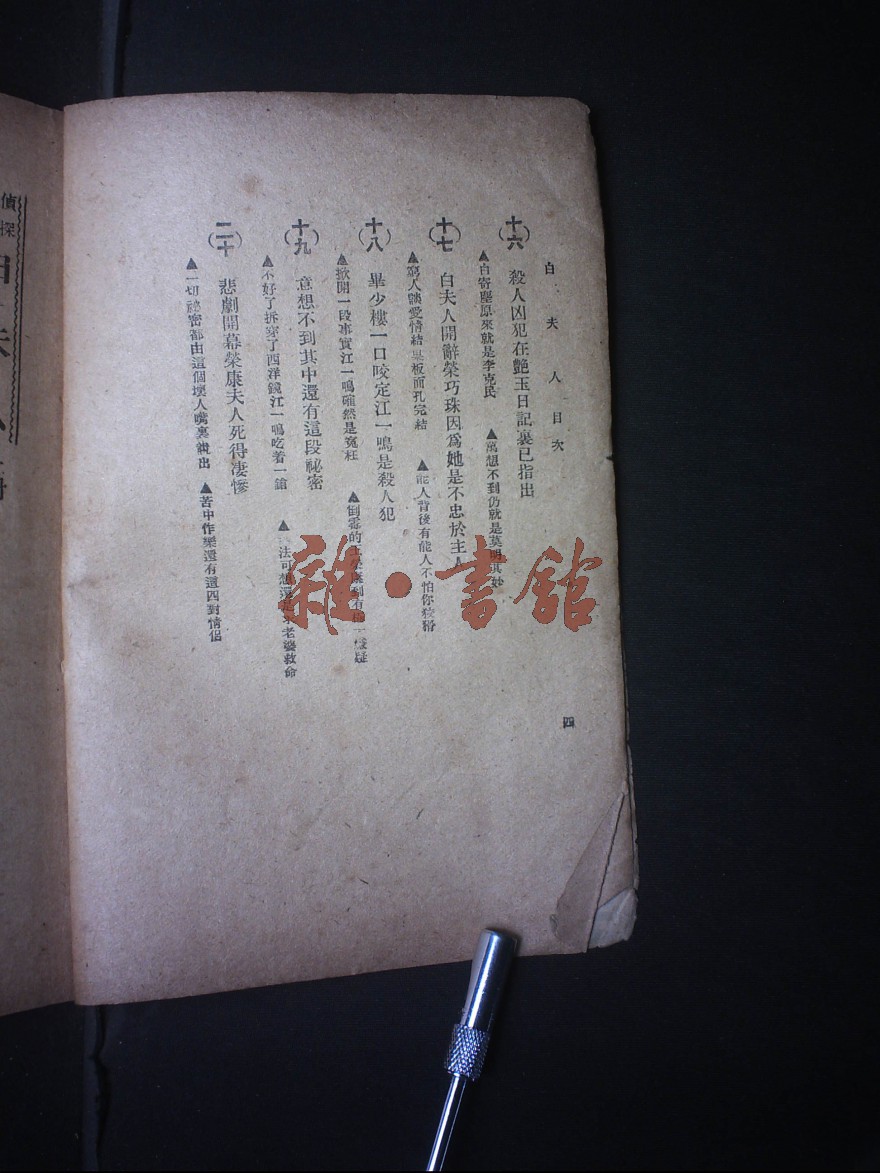 白夫人目次
四
(十六) 殺人凶犯在艷玉日記裏已指出
▲白寄塵原來就是李克民 ▲萬想不到仍就是莫明其妙
(十七) 白夫人開辭榮巧珠因爲她是不忠於主人
▲窮人談愛情結果板面孔完結 ▲能人背後有能人不怕你狡猾
(十八) 畢少樓一口咬定江一鳴是殺人犯
▲掀開一段事實江一鳴確然是冤枉 ▲倒霉的 到有 嫌疑
(十九) 意想不到其中還有這段祕密
▲不好了拆穿了西洋鏡江一鳴吃着一鎗 ▲ 法可想還是 老婆救命
(二十) 悲劇開幕榮康夫人死得凄慘
▲一切祕密都由這個壞人嘴裏說出 ▲苦中作樂還有這四對情侶
偵探
雜·書館